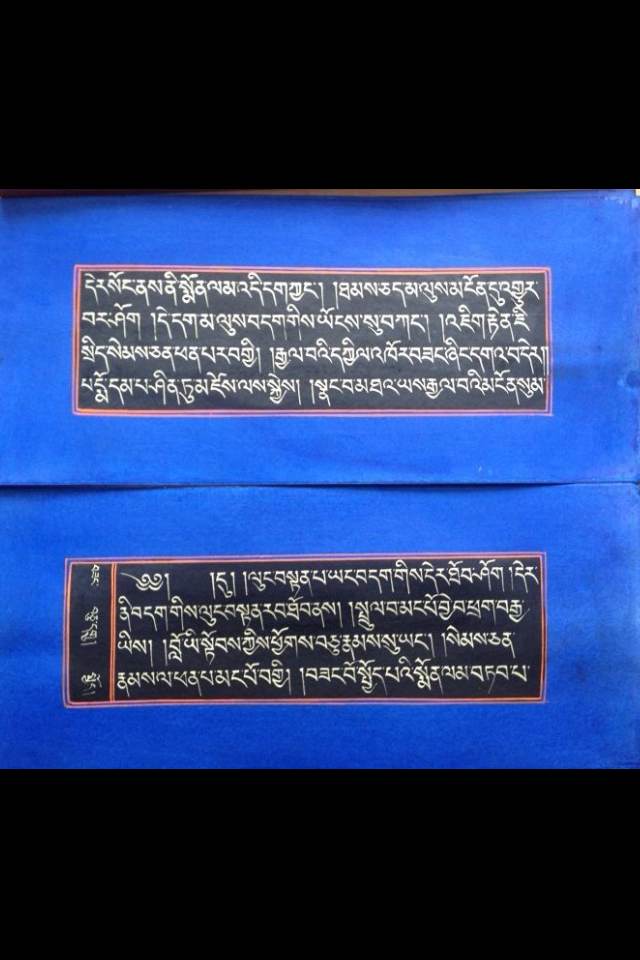 དེར་སོང་ནས་ནི་སྨོན་ལམ་འདི་དག་ཀྱང་། །ཐམས་ཅད་མ་ལུས་མངོན་དུ་འགྱུར་
བར་ཤོག །དེ་དག་མ་ལུས་བདག་གིས་ཡོངས་སུ་བཀང་། །འཇིག་རྟེན་ཇི་
སྲིད་སེམས་ཅན་ཕན་པར་བགྱི། །རྒྱལ་བའི་དཀྱིལ་འཁོར་བཟང་ཞིང་དགའ་བ་དེར། །
པདྨོ་དམ་པ་ཤིན་ཏུ་མཛེས་ལས་སྐྱེས། །སྣང་བ་མཐའ་ཡས་རྒྱལ་བའི་མངོན་སུམ་
༄༅། །དུ། །ལུང་བསྟན་པ་ཡང་བདག་གིས་དེར་ཐོབ་ཤོག །དེར་
ནི་བདག་གིས་ལུང་བསྟན་རབ་ཐོབ་ནས། །སྤྲུལ་བ་མང་པོ་བྱེ་བ་ཕྲག་བརྒྱ་
ཡིས། །བློ་ཡི་སྟོབས་ཀྱིས་ཕྱོགས་བཅུ་རྣམས་སུ་ཡང་། །སེམས་ཅན་
རྣམས་ལ་ཕན་པ་མང་པོ་བགྱི། །བཟང་པོ་སྤྱོད་པའི་སྨོན་ལམ་བཏབ་པ་